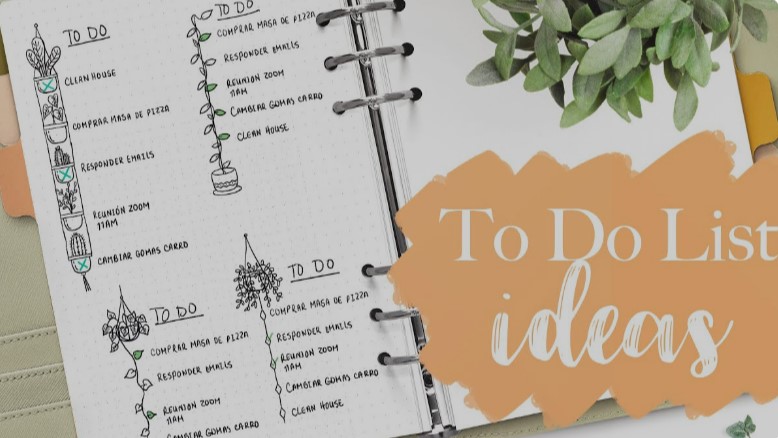 TO DO
CLEAN HOUSE
COMPRAR MASA DE PIZZA
RESPONDER EMAILS
REUNIÓN ZOOM
11AM
CAMBIAR GOMAS CARRO
TO DO
COMPRAR MASA DE PIZZA
RESPONDER EMAILS
REUNION ZOOM
11AM
CAMBIAR GOMAS CARRO
CLEAN HOUSE
TO DO
COMPRAR MASA DE PIZZA
RESPONDER EMAILS
REUNION ZOOM
11AM
CAMBIAR GOMAS CARRO
TO DO
COMPRAR MASA DE PIZZA
RESPONDER EMAILS
REUNION ZOOM
11AM
CAMBIAR GOMAS CARRO
CLEAN HOUSE
To Do List
ideas